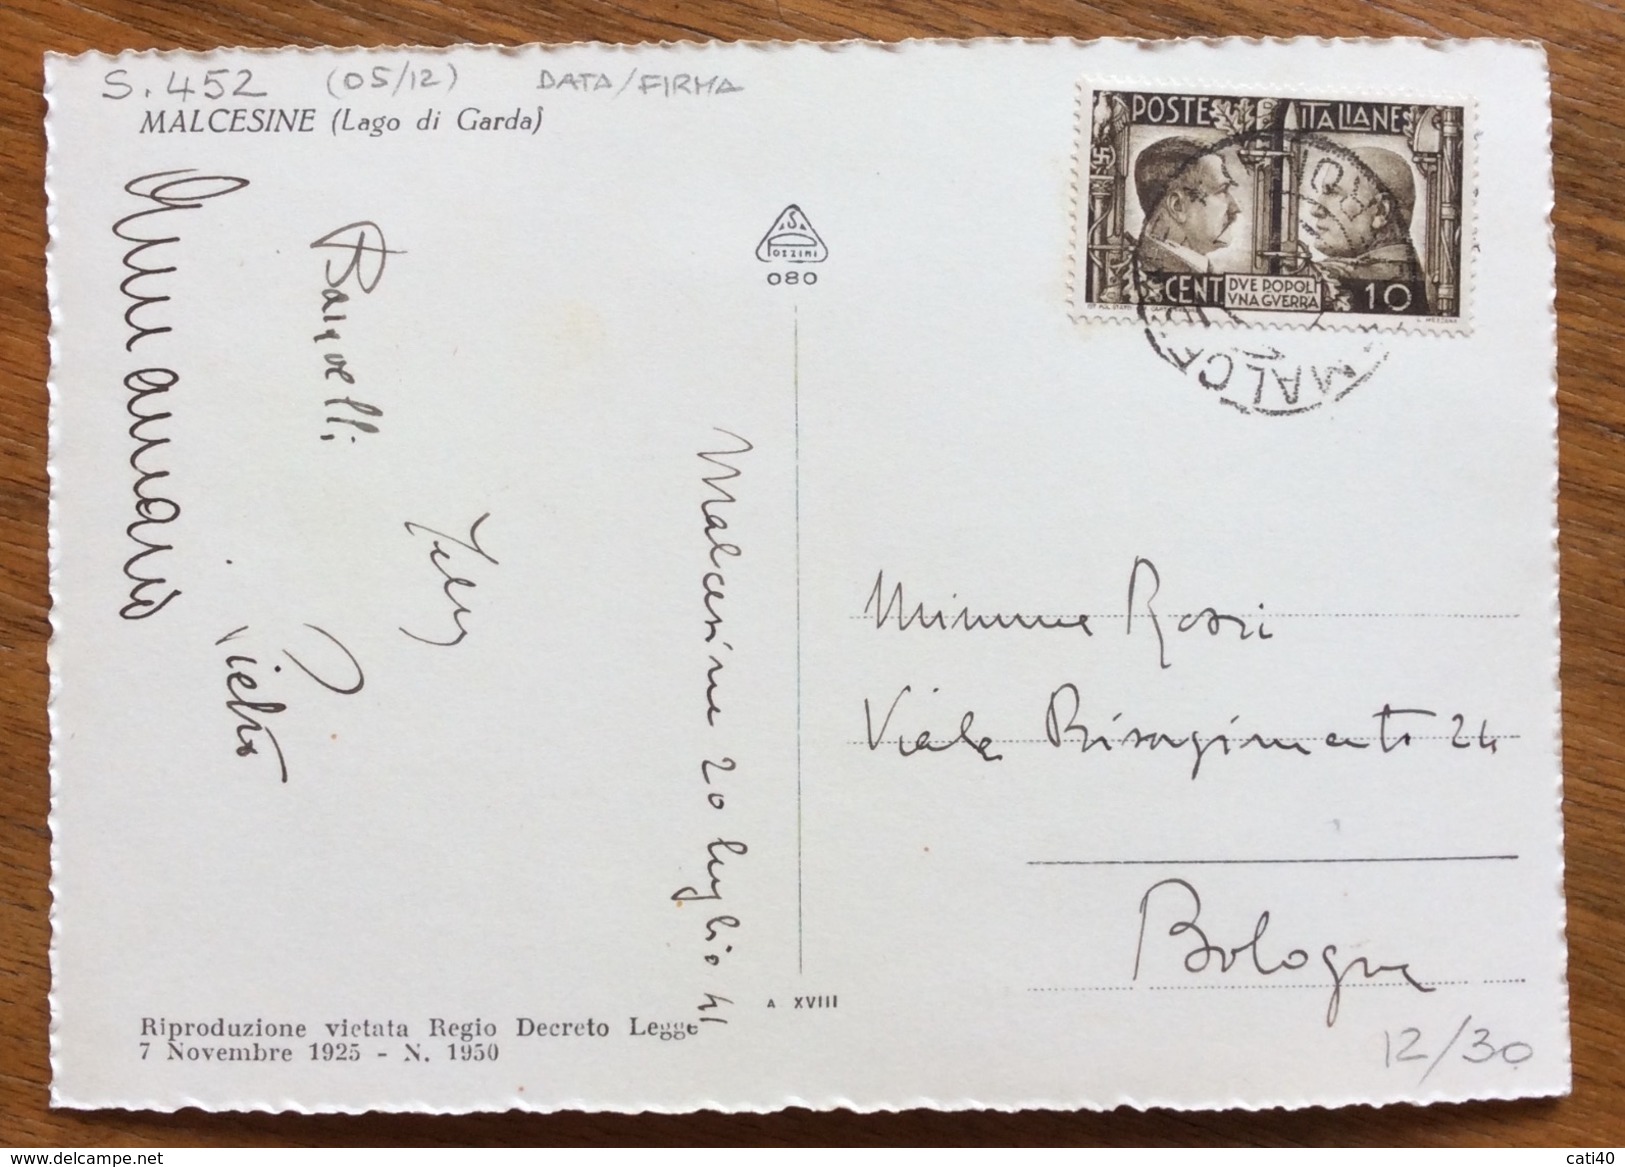 S. 452 (05/12) DATA/FIRMA
MALCESINE (Lago di Garda)
POSTE ITALIANE
CENT. 10
DVE POPOLI
VNA GVERRA
MALCESINE
S.A.
Pozzini
080
Malcesine 20 luglio 41
Pietro
Mimma Rossi
Viale Risorgimento 24
Bologna
A XVIII
Riproduzione vietata Regio Decreto Legge
7 Novembre 1925 - N. 1950
12/30
www.delcampe.net
cati40